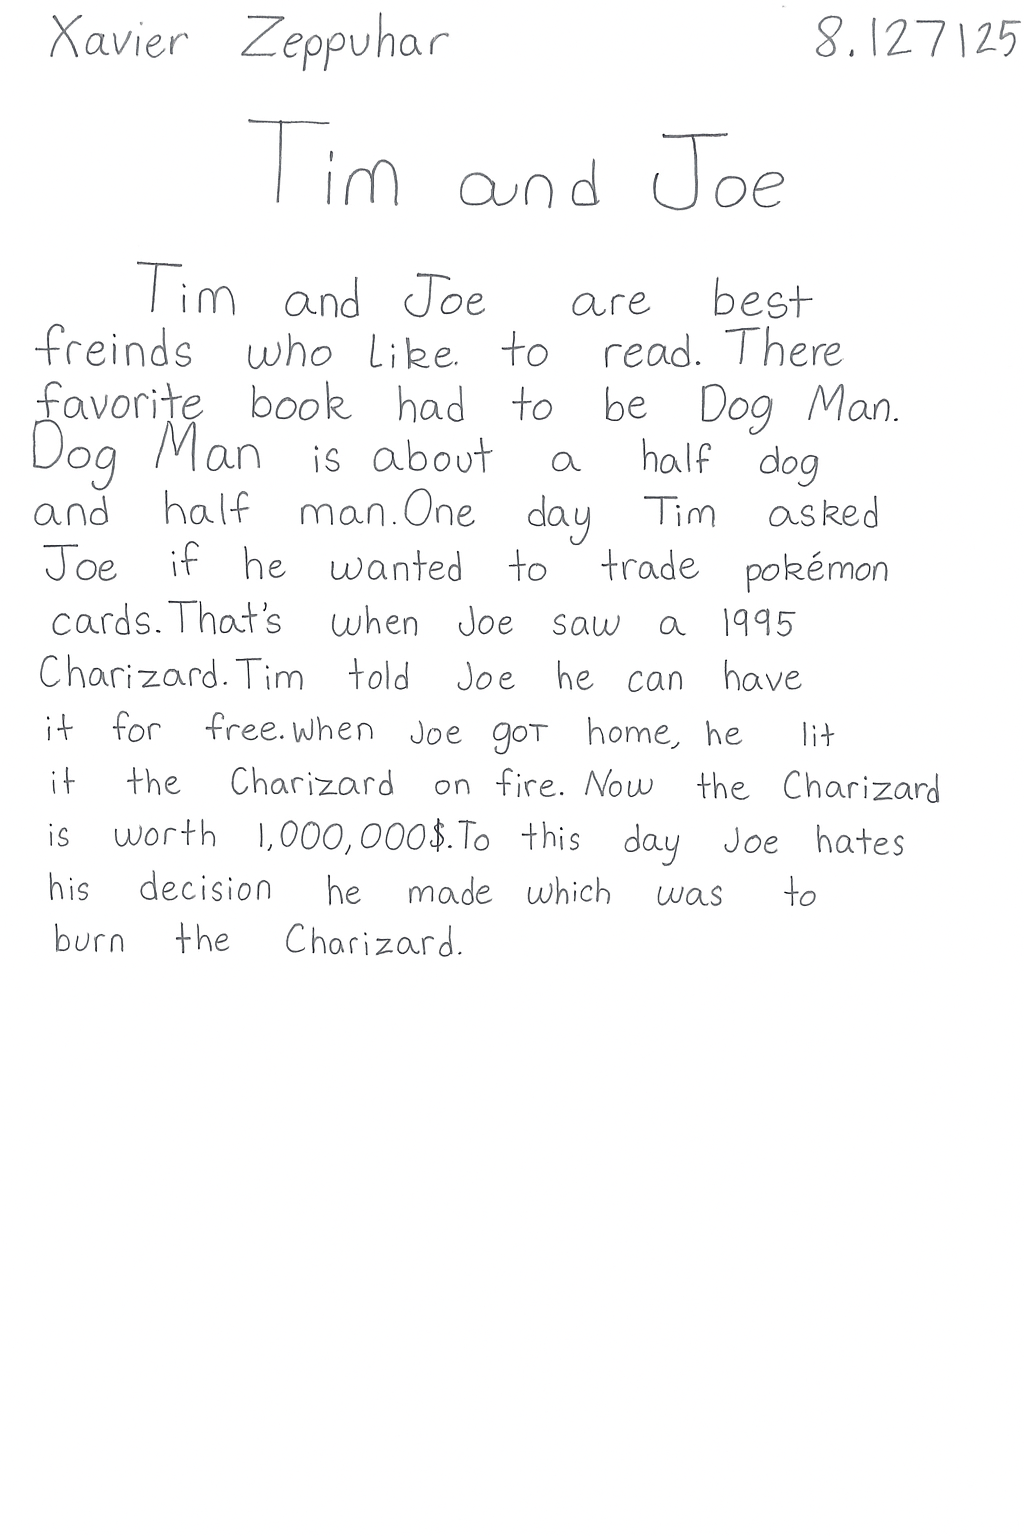 Xavier Zeppuhar 8.127125
Tim and Joe
Tim and Joe are best
freinds who like. to read. There
favorite book had to be Dog Man.
Dog Man is about a half dog
and half man. One day Tim asked
Joe if he wanted to trade pokémon
cards. That's when Joe saw a 1995
Charizard. Tim told Joe he can have
it for free. When Joe got home, he lit
it the Charizard on fire. Now the Charizard
is worth 1,000,000$. To this day Joe hates
his decision he made which was to
burn the Charizard.